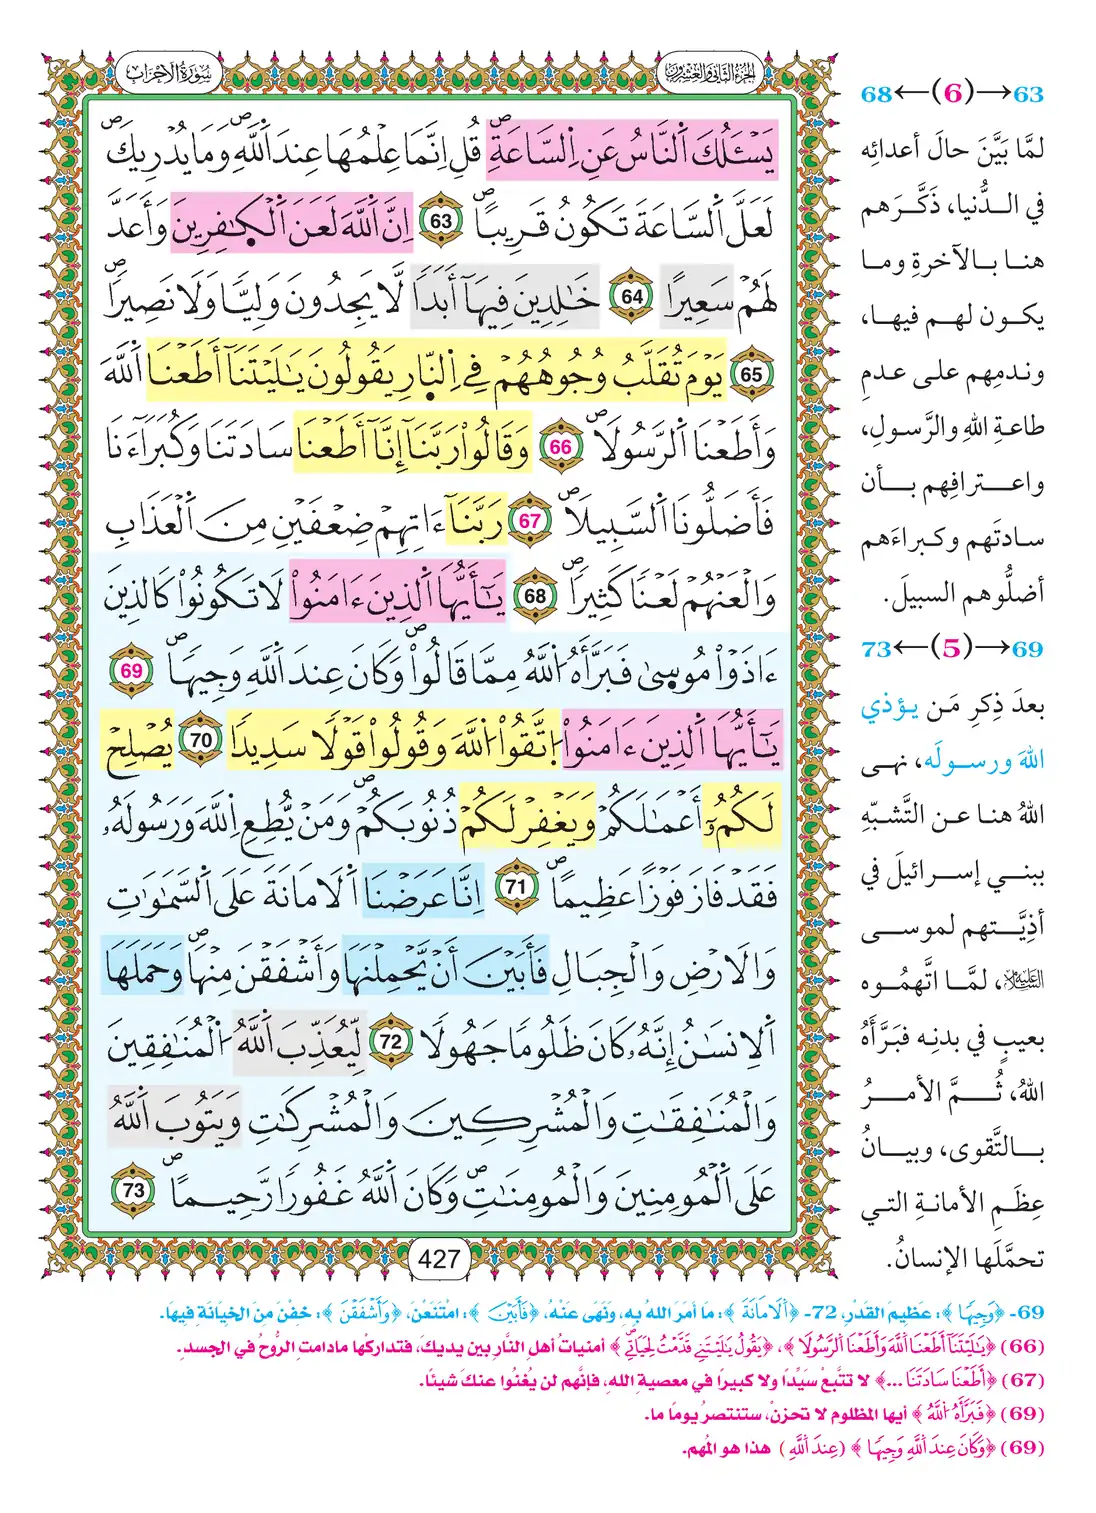 سُورَةُ الأَحْزَابِ
الجُزْءُ الثَّانِي وَالعِشْرُونَ
يَسْـَٔلُكَ اَ۬لنَّاسُ عَنِ اِ۬لسَّاعَةِۖ قُلِ اِنَّمَا عِلْمُهَا عِندَ اَ۬للَّهِۖ وَمَا يُدْرِيكَۖ
لَعَلَّ اَ۬لسَّاعَةَ تَكُونُ قَرِيباًۖ 63 اِنَّ اَ۬للَّهَ لَعَنَ اَ۬لْكٰفِرِينَ وَأَعَدَّ
لَهُمْ سَعِيراً 64 خَٰلِدِينَ فِيهَآ أَبَداً لَّا يَجِدُونَ وَلِيّاً وَلَا نَصِيراًۖ
65 يَوْمَ تُقَلَّبُ وُجُوهُهُمْ فِے اِ۬لنّ۪ارِ يَقُولُونَ يَٰلَيْتَنَآ أَطَعْنَا اَ۬للَّهَ
وَأَطَعْنَا اَ۬لرَّسُولَاۖ 66 وَقَالُواْ رَبَّنَآ إِنَّآ أَطَعْنَا سَادَتَنَا وَكُبَرَآءَنَا
فَأَضَلُّونَا اَ۬لسَّبِيلَاۖ 67 رَبَّنَآ ءَاتِهِمْ ضِعْفَيْنِ مِنَ اَ۬لْعَذَابِ
وَالْعَنْهُمْ لَعْناً كَثِيراًۖ 68 يَٰٓأَيُّهَا اَ۬لذِينَ ءَامَنُواْ لَا تَكُونُواْ كَالذِينَ
ءَاذَوْاْ مُوس۪ىٰ فَبَرَّأَهُ اُ۬للَّهُ مِمَّا قَالُواْۖ وَكَانَ عِندَ اَ۬للَّهِ وَجِيهاًۖ 69
يَٰٓأَيُّهَا اَ۬لذِينَ ءَامَنُواْ اُ۪تَّقُواْ اُ۬للَّهَ وَقُولُواْ قَوْلاً سَدِيداً 70 يُصْلِحْ
لَكُمُۥٓ أَعْمَٰلَكُمْ وَيَغْفِرْ لَكُمْ ذُنُوبَكُمْۖ وَمَنْ يُّطِعِ اِ۬للَّهَ وَرَسُولَهُۥ
فَقَدْ فَازَ فَوْزاً عَظِيماًۖ 71 اِنَّا عَرَضْنَا اَ۬لَامَانَةَ عَلَى اَ۬لسَّمَٰوَٰتِ
وَالَارْضِ وَالْجِبَالِ فَأَبَيْنَ أَنْ يَّحْمِلْنَهَا وَأَشْفَقْنَ مِنْهَاۖ وَحَمَلَهَا
اَ۬لِانسَٰنُ إِنَّهُۥ كَانَ ظَلُوماً جَهُولاً 72 لِّيُعَذِّبَ اَ۬للَّهُ اُ۬لْمُنَٰفِقِينَ
وَالْمُنَٰفِقَٰتِ وَالْمُشْرِكِينَ وَالْمُشْرِكَٰتِ وَيَتُوبَ اَ۬للَّهُ
عَلَى اَ۬لْمُومِنِينَ وَالْمُومِنَٰتِۖ وَكَانَ اَ۬للَّهُ غَفُوراً رَّحِيماًۖ 73
427
63→(6)←68
لمَّا بَيَّنَ حالَ أعدائِه
في الـدُّنيا، ذَكَّـرَهم
هنـا بـالآخرةِ ومـا
يكـون لهـم فيهـا،
وندمِهم علـى عـدمِ
طاعـةِ اللهِ والرَّسولِ،
واعـتـرافِهم بـأن
سـادتَهم وكـبراءَهم
أضلُّوهم السبيلَ.
69→(5)←73
بعدَ ذِكرِ مَـن يـؤذي
اللهَ ورسـولَه، نهـى
اللهُ هنـا عـن التَّشبّهِ
ببنـي إسـرائيلَ في
أذِيَّـتهم لموسـى
عليه السلام، لمَّـا اتَّهمُـوه
بعيبٍ في بدنِـه فبَرَّأَهُ
اللهُ، ثُـمَّ الأمـرُ
بـالتَّقوى، وبيـانُ
عِظَـمِ الأمانـةِ التـي
تحمَّلَها الإنسانُ.
69- ﴿وَجِيهاً﴾: عَظِيمَ القَدْرِ، 72- ﴿اَ۬لَامَانَةَ﴾: مَا أَمَرَ اللهُ بِهِ، وَنَهَى عَنْهُ، ﴿فَأَبَيْنَ﴾: امْتَنَعْنَ، ﴿وَأَشْفَقْنَ﴾: خِفْنَ مِنَ الخِيَانَةِ فِيهَا.
(66) ﴿يَٰلَيْتَنَآ أَطَعْنَا اَ۬للَّهَ وَأَطَعْنَا اَ۬لرَّسُولَا﴾، ﴿يَقُولُ يَٰلَيْتَنِے قَدَّمْتُ لِحَيَاتِے﴾ أمنياتُ أهلِ النَّارِ بين يديكَ، فتداركْها مادامتِ الرُّوحُ في الجسدِ.
(67) ﴿أَطَعْنَا سَادَتَنَا ...﴾ لا تتَّبعْ سَيِّدًا ولا كبيرًا في معصيةِ اللهِ، فإنَّهم لن يُغْنُوا عنكَ شيئًا.
(69) ﴿فَبَرَّأَهُ اُ۬للَّهُ﴾ أيها المظلوم لا تحزنْ، ستنتصرُ يومًا ما.
(69) ﴿وَكَانَ عِندَ اَ۬للَّهِ وَجِيهاً﴾ (عِندَ اَ۬للَّهِ) هذا هو المُهم.